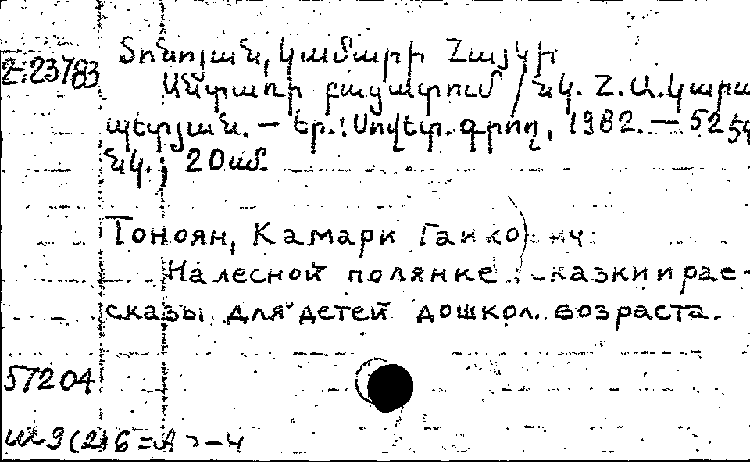 Հ.23783 Տոնոյան, Կամարի Հայկի
Անտառի բացատում / նկ. Հ. Ա. Կարա
պետյան. — Եր.: Սովետ. գրող, 1982. — 52
նկ., 20 սմ.
Тоноян, Камари
На лесной полянке: казки и рас-
сказы для детей дошкол. возраста.
57204